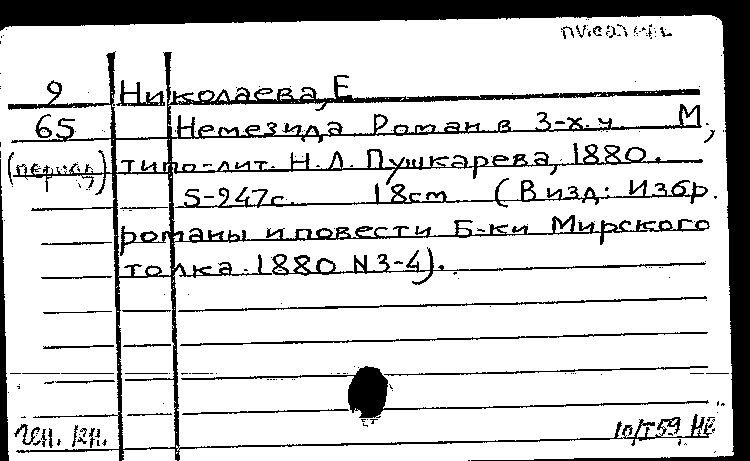 писатель
9 Николаева, Е
65 Немезида Роман в 3-х ч М,
(период) типо-лит. Н. Л. Пушкарева, 1880.
5-247с. 18см (В изд: Избр.
романы и повести Б-ки Мирского
толка. 1880 N3-4).
10/I59, НВ